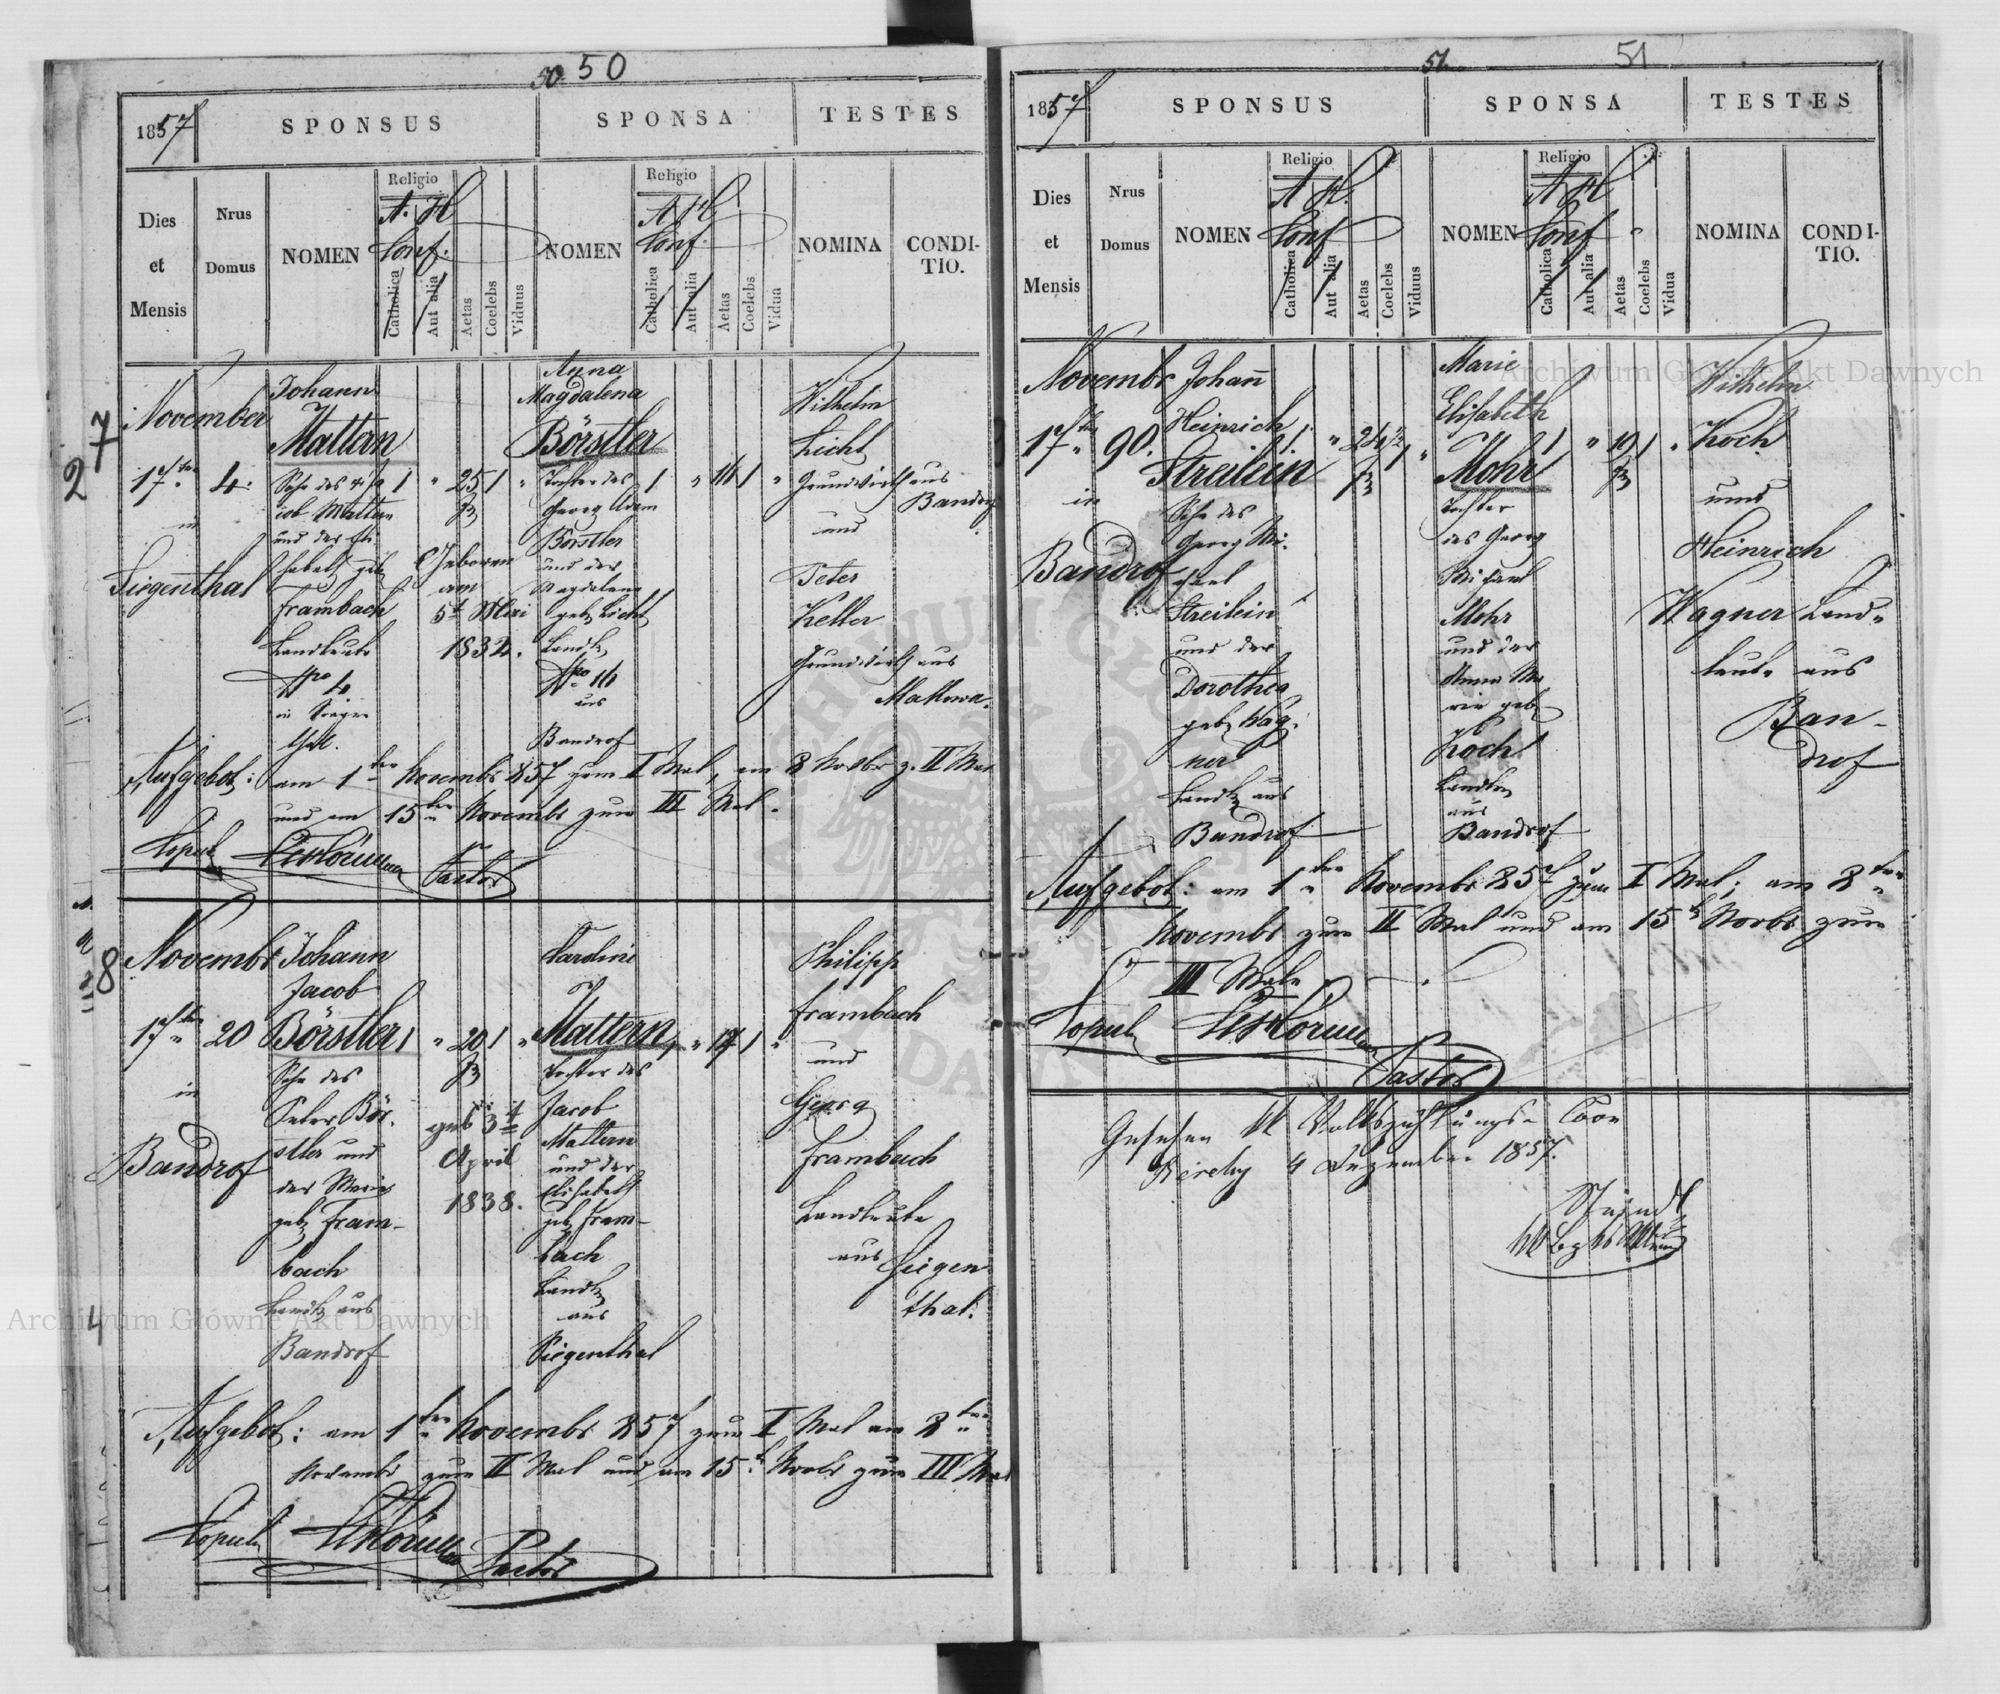 50. 50
1857 SPONSUS SPONSA TESTES
Dies et Mensis
Nrus Domus
NOMEN
Religio
A. H.
Conf.
Catholica
Aut alia
Aetas
Coelebs
Viduus
NOMEN
Religio
A H
Conf.
Catholica
Aut alia
Aetas
Coelebs
Vidua
NOMINA
CONDI-
TIO.
7
2
November
17ten
in
Siegenthal
4.
Johann
Mattern
Sohn des
Mattern
und der Eli-
sabeth geb
Frambach
Landleute
Nro 4
in Siegen
thal.
1 " 25 1 "
Geboren
am
5t
1832.
Anna
Magdalena
Börstler
Tochter des
Georg Adam
Börstler
und der
Magdalena
geb. Licht
Landl.
Nro 16
aus
Bandrof
1 " 16 1 "
Wilhelm
Licht
Grundwirth aus
Bandrof
und
Peter
Keller
Grundwirth aus
Makowa.
Aufgebot: am 1ten Novembr 857 zum I Mal, am 8 Novbr z. II Mal
und am 15ten Novembr zum III Mal.
Copul
Pastor
8
Novembr
17ten
in
Bandrof
20
Johann
Jacob
Börstler
Sohn des
Peter Bör-
stler und
der Maria
geb. Fram-
bach
Landl. aus
Bandrof
1 " 20 1 "
geb 3t
April
1838.
Karoline
Mattern
Tochter des
Jacob
Mattern
und der
Elisabeth
geb. Fram-
bach
Landl.
aus
Siegenthal
1 " 17 1 "
Philipp
Frambach
und
Georg
Frambach
Landleute
aus Siegen
thal.
Aufgebot: am 1ten Novembr 857 zum I Mal am 8ten
Novembr zum II Mal und am 15t Novbr zum III Mal
Copul
Pastor
4
51. 51
1857 SPONSUS SPONSA TESTES
Dies et Mensis
Nrus Domus
NOMEN
Religio
A H.
Conf
Catholica
Aut alia
Aetas
Coelebs
Viduus
NOMEN
Religio
A H
Conf
Catholica
Aut alia
Aetas
Coelebs
Vidua
NOMINA
CONDI-
TIO.
Novembr
17ten
in
Bandrof
90.
Johann
Heinrich
Streilein
Sohn des
Georg Mi-
chael
Streilein
und der
Dorothea
geb. Wag-
ner
Landl. aus
Bandrof
1 " 24½ 1 "
Marie
Elisabeth
Mohr
Tochter
des Georg
Michael
Mohr
und der
Anna Ma
rie geb.
Koch
Landl.
aus
Bandrof
1 " 19 1 "
Wilhelm
Koch
und
Heinrich
Wagner Land-
leute aus
Ban-
drof
Aufgebot: am 1ten Novembr 857 zum I Mal; am 8ten
Novembr zum II Mal und am 15t Novbr zum
III Male.
Copul
Pastor
Gesehen Volkszählungs-
4 Dezember 1857.
Archiwum Główne Akt Dawnych
Archiwum Główne Akt Dawnych